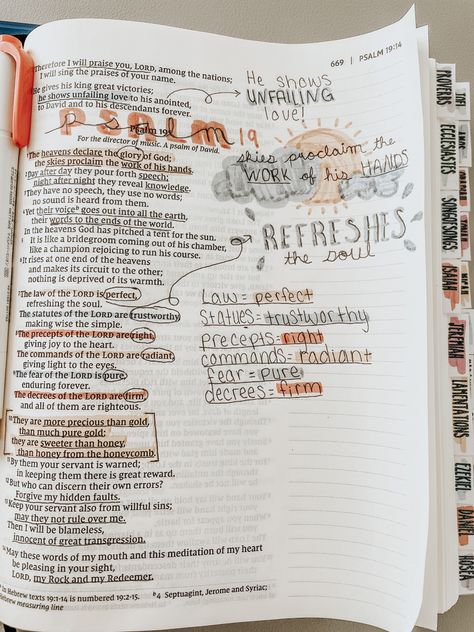 669 | PSALM 19:14
Therefore I will praise you, LORD, among the nations;
I will sing the praises of your name.
He gives his king great victories;
he shows unfailing love to his anointed,
to David and to his descendants forever.
PSALM 19
psalm
Psalm 19
For the director of music. A psalm of David.
The heavens declare the glory of God;
the skies proclaim the work of his hands.
2 Day after day they pour forth speech;
night after night they reveal knowledge.
3 They have no speech, they use no words;
no sound is heard from them.
4 Yet their voice b goes out into all the earth,
their words to the ends of the world.
In the heavens God has pitched a tent for the sun.
5 It is like a bridegroom coming out of his chamber,
like a champion rejoicing to run his course.
6 It rises at one end of the heavens
and makes its circuit to the other;
nothing is deprived of its warmth.
7 The law of the LORD is perfect,
refreshing the soul.
The statutes of the LORD are trustworthy,
making wise the simple.
8 The precepts of the LORD are right,
giving joy to the heart.
The commands of the LORD are radiant,
giving light to the eyes.
9 The fear of the LORD is pure,
enduring forever.
The decrees of the LORD are firm,
and all of them are righteous.
10 They are more precious than gold,
than much pure gold;
they are sweeter than honey,
than honey from the honeycomb.
11 By them your servant is warned;
in keeping them there is great reward.
12 But who can discern their own errors?
Forgive my hidden faults.
13 Keep your servant also from willful sins;
may they not rule over me.
Then I will be blameless,
innocent of great transgression.
14 May these words of my mouth and this meditation of my heart
be pleasing in your sight,
LORD, my Rock and my Redeemer.
In Hebrew texts 19:1-14 is numbered 19:2-15. b4 Septuagint, Jerome and Syriac;
Hebrew measuring line
He shows
UNFAILING
love!
skies proclaim the
WORK of his HANDS
REFRESHES
the soul
Law = perfect
Statues = trustworthy
precepts = right
commands = radiant
fear = pure
decrees = firm
PROVERBS
ECCLESIASTES
SONG OF SONGS
ISAIAH
JEREMIAH
LAMENTATIONS
DANIEL
HOSEA